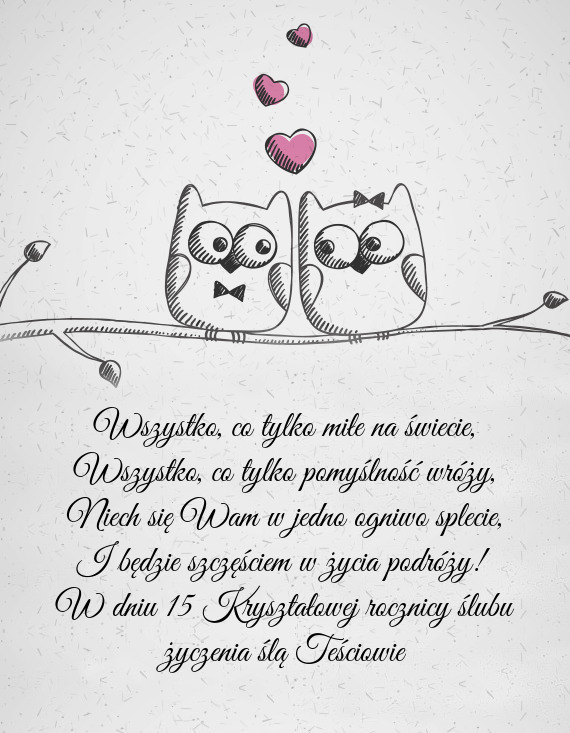 Wszystko, co tylko miłe na świecie,
Wszystko, co tylko pomyślność wróży,
Niech się Wam w jedno ogniwo splecie,
I będzie szczęściem w życia podróży!
W dniu 15 Kryształowej rocznicy ślubu
życzenia ślą Teściowie